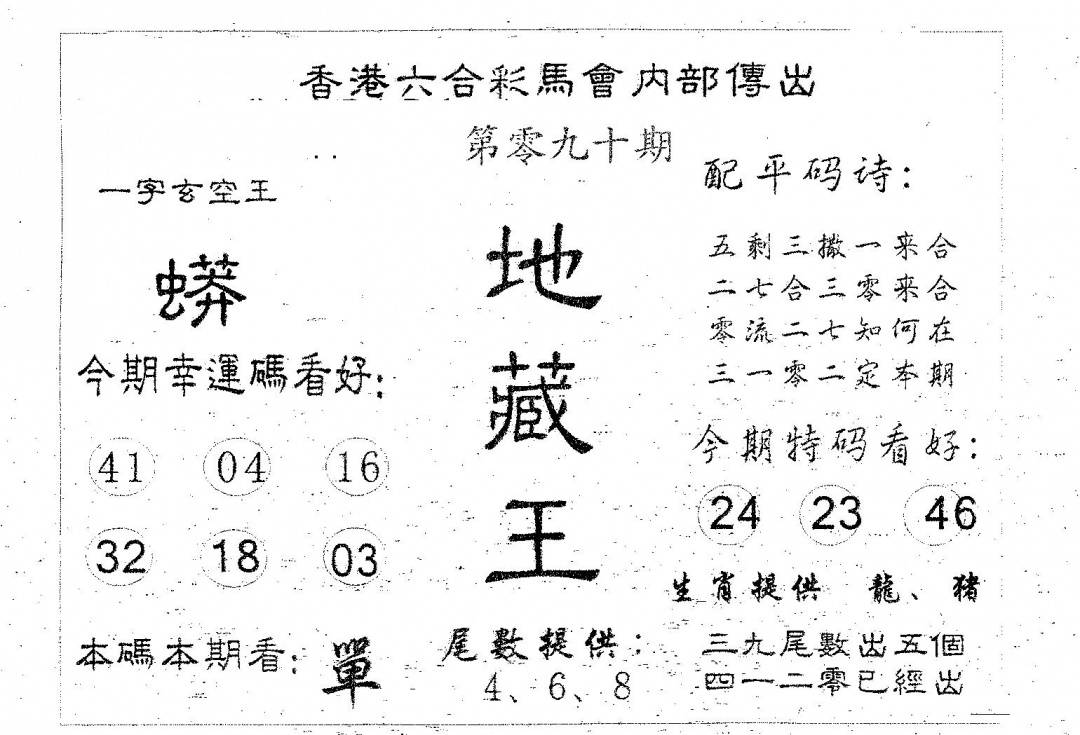 香港六合彩馬會内部傳出
第零九十期
一字玄空王
蟒
今期幸運碼看好：
41 04 16
32 18 03
本碼本期看：單
地藏王
尾數提供：
4、6、8
配平码诗：
五剩三撒一来合
二七合三零来合
零流二七知何在
三一零二定本期
今期特码看好：
24 23 46
生肖提供 龍、猪
三九尾數出五個
四一二零已經出